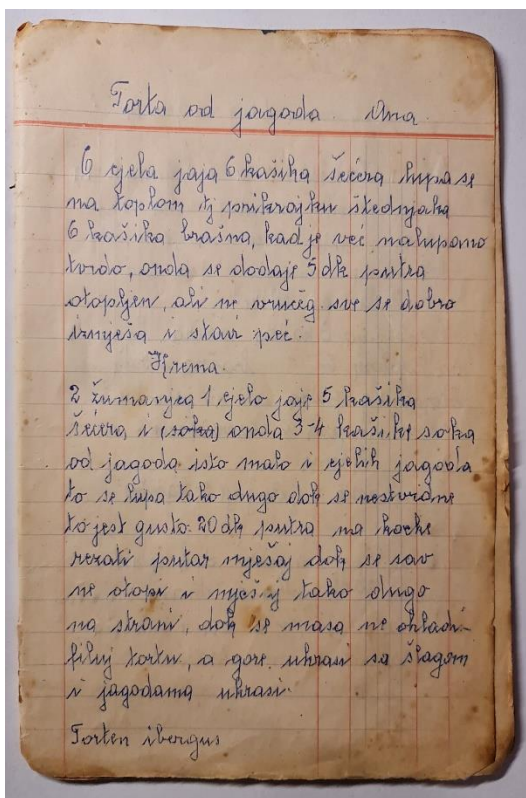 Torta od jagoda. Ana.
6 cjela jaja 6 kašika šećera lupa se
na toplom tj prikrajku štednjaka
6 kašika brašna, kad je već nalupano
tvrdo, onda se dodaje 5 dk putra
otopljen, ali ne vrućeg. sve se dobro
izmješa i stavi peć.
Krema.
2 žumanjca 1 cjelo jaje 5 kašika
šećera i (soka) onda 3-4 kašike soka
od jagoda isto malo i cjelih jagoda
to se lupa tako dugo dok se nestvrdne
to jest gusto. 20 dk putra na kocke
rezati putar mješaj dok se sav
ne otopi i mješaj tako dugo
na strani, dok se masa ne ohladi-
filuj tortu, a gore. ukrasi sa šlagom
i jagodama ukrasi.
Torten ibergus